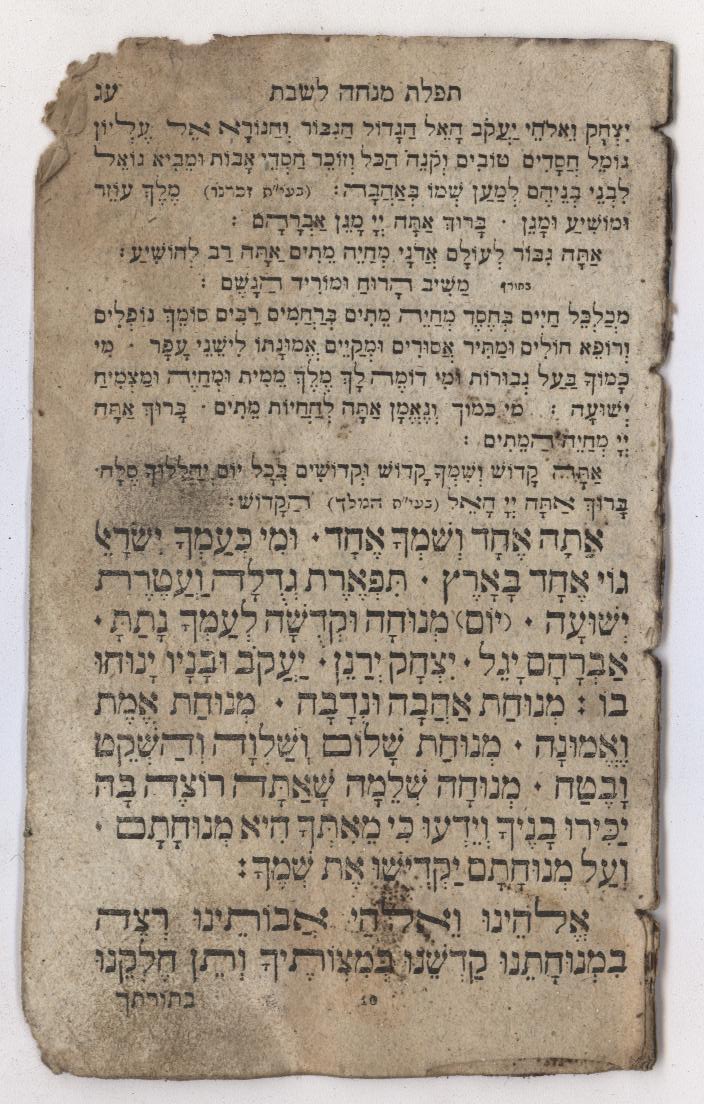 תפלת מנחה לשבת עג
יִצְחָק וֵאלֹהֵי יַעֲקֹב הָאֵל הַגָּדוֹל הַגִּבּוֹר וְהַנּוֹרָא אֵל עֶלְיוֹן
גּוֹמֵל חֲסָדִים טוֹבִים וְקֹנֵה הַכֹּל וְזוֹכֵר חַסְדֵי אָבוֹת וּמֵבִיא גוֹאֵל
לִבְנֵי בְנֵיהֶם לְמַעַן שְׁמוֹ בְּאַהֲבָה: (בעי"ת זכרנו) מֶלֶךְ עוֹזֵר
וּמוֹשִׁיעַ וּמָגֵן · בָּרוּךְ אַתָּה יְיָ מָגֵן אַבְרָהָם :
אַתָּה גִבּוֹר לְעוֹלָם אֲדֹנָי מְחַיֵּה מֵתִים אַתָּה רַב לְהוֹשִׁיעַ:
בחורף מַשִּׁיב הָרוּחַ וּמוֹרִיד הַגֶּשֶׁם :
מְכַלְכֵּל חַיִּים בְּחֶסֶד מְחַיֵּה מֵתִים בְּרַחֲמִים רַבִּים סוֹמֵךְ נוֹפְלִים
וְרוֹפֵא חוֹלִים וּמַתִּיר אֲסוּרִים וּמְקַיֵּים אֱמוּנָתוֹ לִישֵׁנֵי עָפָר · מִי
כָמוֹךָ בַּעַל גְּבוּרוֹת וּמִי דוֹמֶה לָּךְ מֶלֶךְ מֵמִית וּמְחַיֶּה וּמַצְמִיחַ
יְשׁוּעָה : מי כמוך וְנֶאֱמָן אַתָּה לְהַחֲיוֹת מֵתִים · בָּרוּךְ אַתָּה
יְיָ מְחַיֵּה הַמֵּתִים :
אַתָּה קָדוֹשׁ וְשִׁמְךָ קָדוֹשׁ וּקְדוֹשִׁים בְּכָל יוֹם יְהַלְלוּךָ סֶּלָה·
בָּרוּךְ אַתָּה יְיָ הָאֵל (בעי"ת המלך) הַקָּדוֹשׁ:
אַתָּה אֶחָד וְשִׁמְךָ אֶחָד · וּמִי כְּעַמְּךָ יִשְׂרָאֵל
גּוֹי אֶחָד בָּאָרֶץ · תִּפְאֶרֶת גְּדֻלָּה וַעֲטֶרֶת
יְשׁוּעָה · (יוֹם) מְנוּחָה וּקְדֻשָּׁה לְעַמְּךָ נָתַתָּ ·
אַבְרָהָם יָגֵל · יִצְחָק יְרַנֵּן · יַעֲקֹב וּבָנָיו יָנוּחוּ
בוֹ : מְנוּחַת אַהֲבָה וּנְדָבָה · מְנוּחַת אֱמֶת
וֶאֱמוּנָה · מְנוּחַת שָׁלוֹם וְשַׁלְוָה וְהַשְׁקֵט
וָבֶטַח · מְנוּחָה שְׁלֵמָה שָׁאַתָּה רוֹצֶה בָּהּ
יַכִּירוּ בָנֶיךָ וְיֵדְעוּ כִּי מֵאִתְּךָ הִיא מְנוּחָתָם ·
וְעַל מְנוּחָתָם יַקְדִּישׁוּ אֶת שְׁמֶךָ :
אֱלֹהֵינוּ וֵאלֹהֵי אֲבוֹתֵינוּ רְצֵה
בִמְנוּחָתֵנוּ קַדְּשֵׁנוּ בְּמִצְוֹתֶיךָ וְתֵן חֶלְקֵנוּ
10 בתורתך